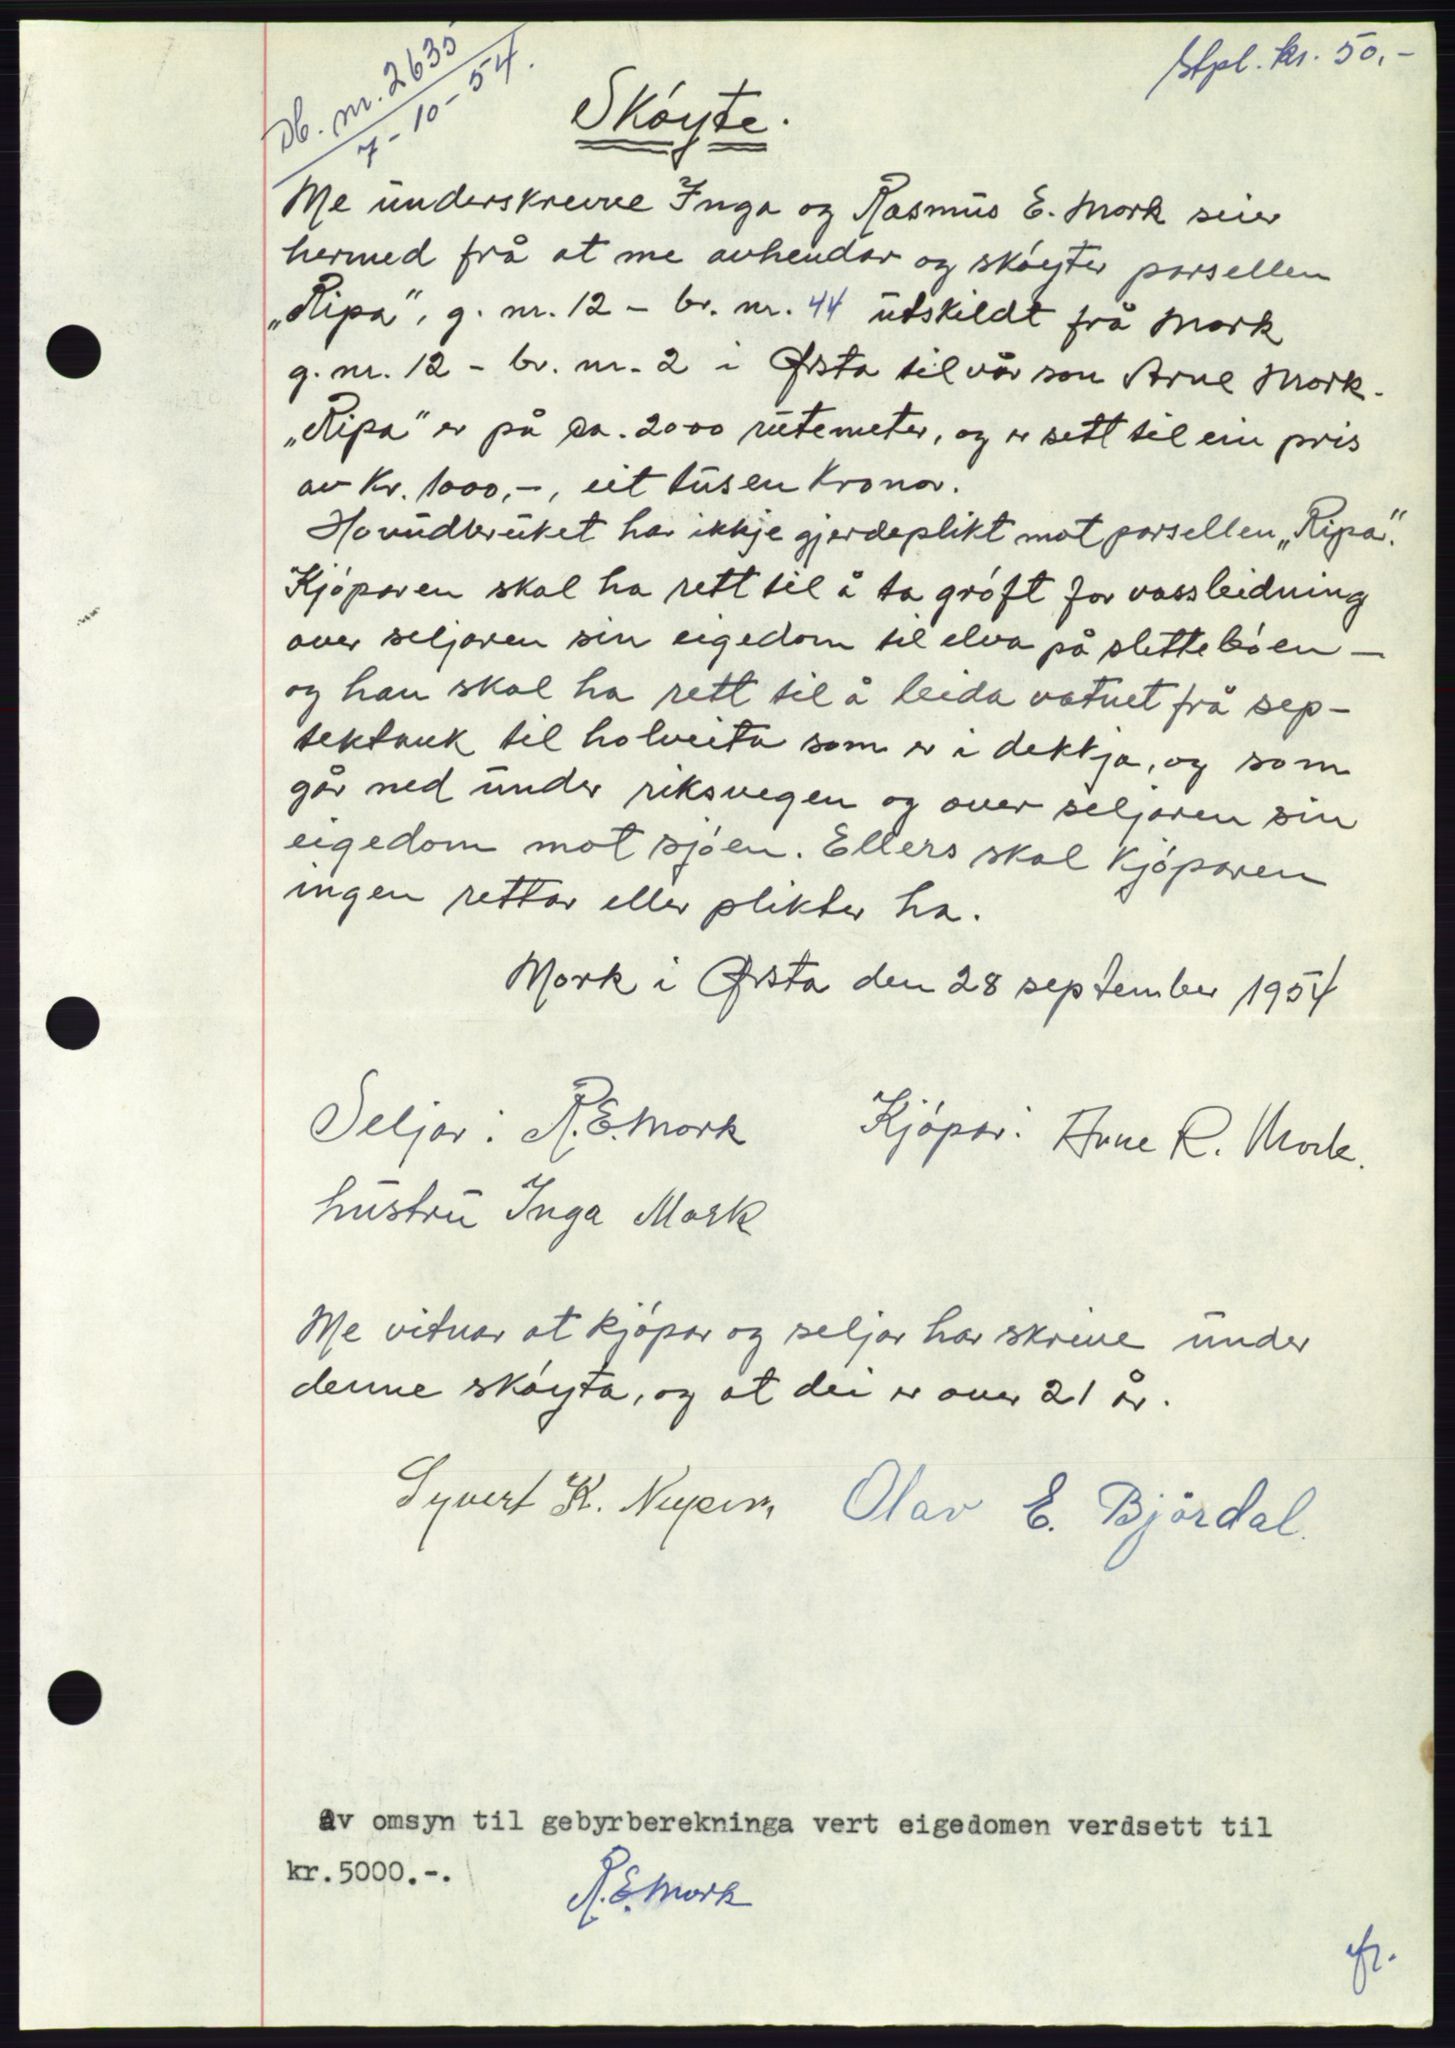 Db. nr. 2635
7-10-54.
Stpl. kr. 50.-
Skóyte.
Me underskrevne Inga og Rasmus E. Mork seier
hermed frå at me avhendar og skóyter parsellen
„Ripa", g. nr. 12 - br. nr. 44 utskildt frå Mork
g. nr. 12 - br. nr. 2 i Ørsta til vår son Arne Mork.
„Ripa" er på ca. 2000 rutemeter, og er sett til ein pris
av kr. 1000,-, eit tusen kronor.
Hovudbruket har ikkje gjerdeplikt mot parsellen „Ripa".
Kjóparen skal ha rett til å ta gróft for vassleidning
over seljaren sin eigedom til elva på slettebóen -
og han skal ha rett til å leida vatnet frå sep-
tektank til holveita som er i dekkja, og som
går ned under riksvegen og over seljaren sin
eigedom mot sjóen. Ellers skal kjóparen
ingen rettar eller plikter ha.
Mork i Ørsta den 28 september 1954
Seljar: R. E. Mork Kjópar: Arne R. Mork.
hustru Inga Mork
Me vitnar at kjópar og seljar har skrive under
denne skóyta, og at dei er over 21 år.
Syvert K. Olav E. Bjørdal.
Av omsyn til gebyrberekninga vert eigedomen verdsett til
kr.5000.-.
R. E. Mork